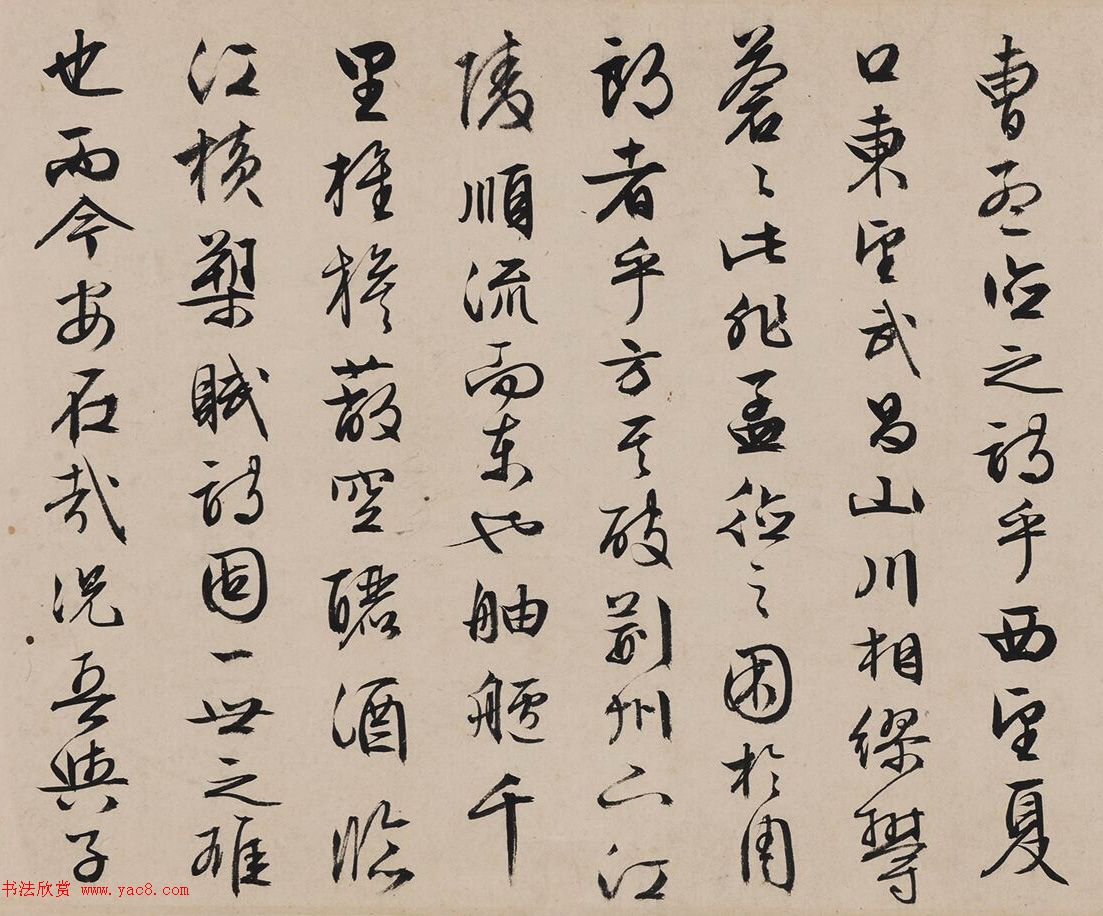 曹孟德之詩乎西望夏
口東望武昌山川相繆鬱
蒼〻此非孟德之困於周
郎者乎方其破荊州下江
陵順流而東也舳艫千
里旌旗蔽空釃酒臨
江橫槊賦詩固一世之雄
也而今安在哉況吾與子
书法欣赏 www.yac8.com